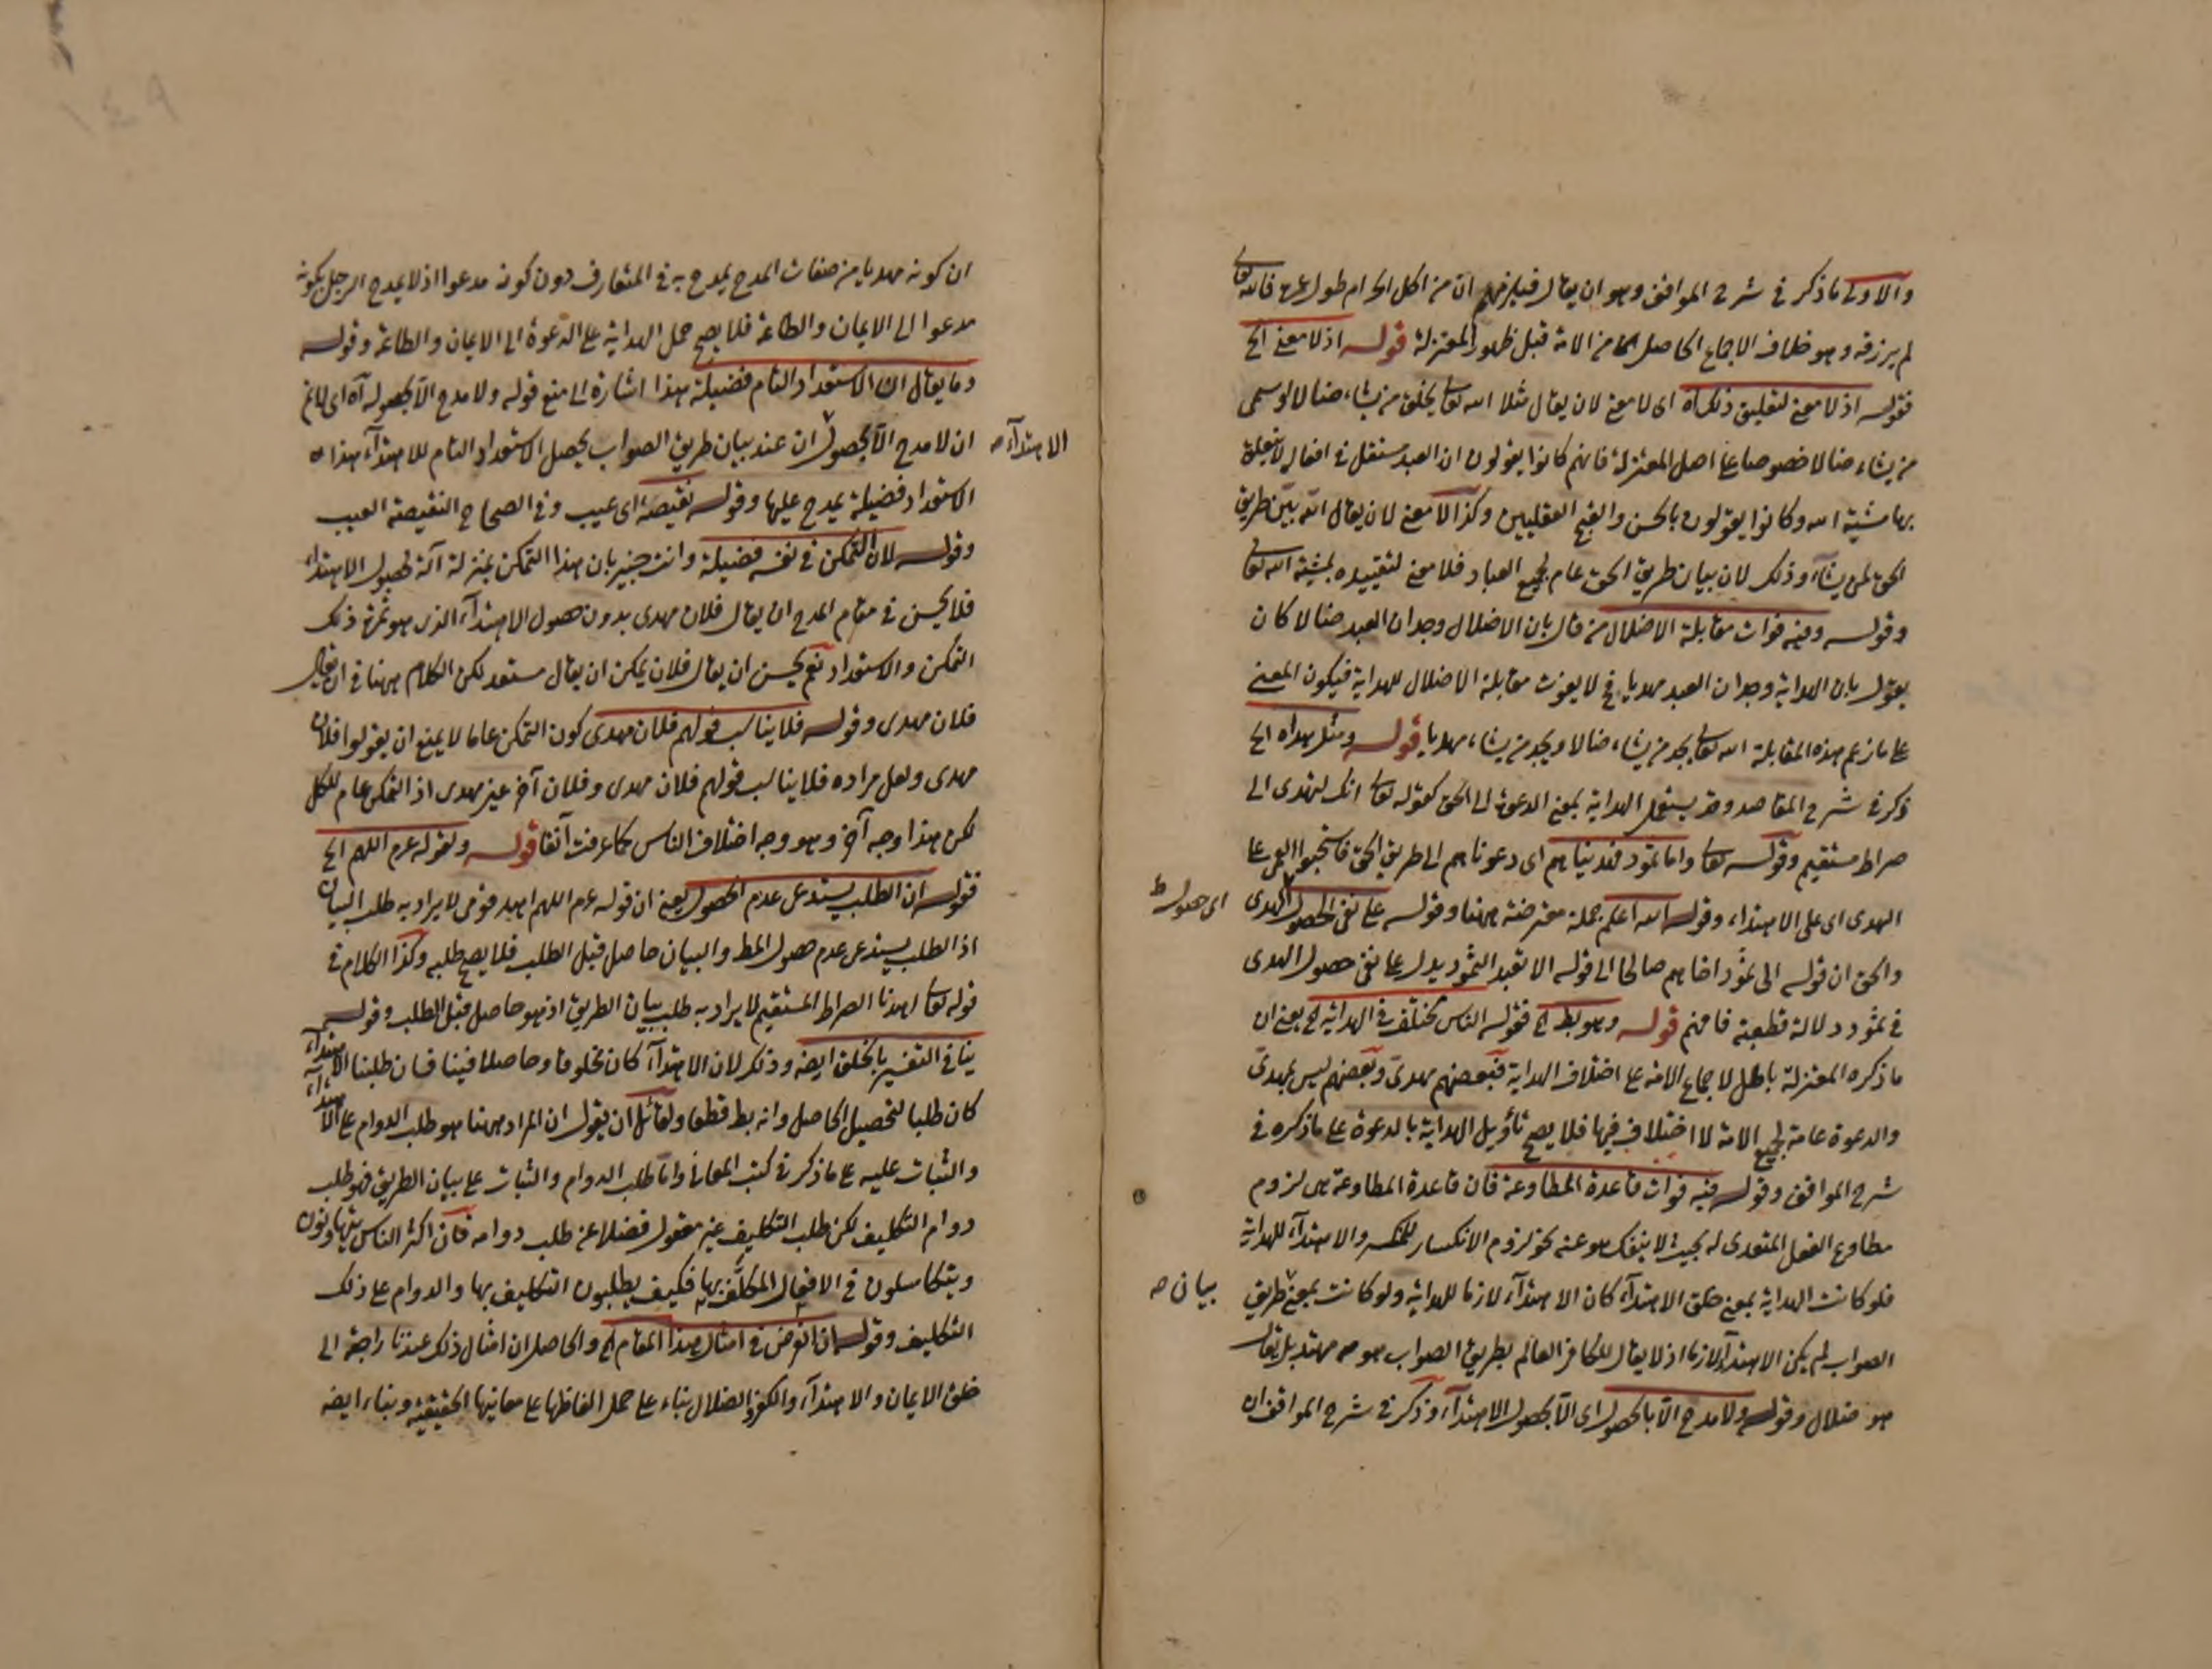 والاولى ما ذكر في شرح المواقف وهو ان يقال فيلزمهم ان من اكل الحرام طول عمره فالله تعالى
لم يرزقه وهو خلاف الاجماع الحاصل من الامة قبل ظهور المعتزلة قوله اذ لا معنى الخ
فقوله اذ لا معنى لتعليق ذلك اه اى لا معنى لان يقال مثلا الله تعالى يخلق من يشاء ضالا او سمى
من يشاء ضالا خصوصا على اصل المعتزلة فانهم كانوا يقولون ان العبد مستقل في افعاله لا يتعلق
بها مشية الله وكانوا يقولون بالحسن والقبح العقليين وكذا لا معنى لان يقال الله بين طريق
الحق لمن يشاء وذلك لان بيان طريق الحق عام لجميع العباد فلا معنى لتقييده بمشية الله تعالى
وقوله وفيه فوات مقابلة الاضلال من قال بان الاضلال وجدان العبد ضالا كان
يقول بان الهداية وجدان العبد مهديا فح لا يفوت مقابلة الاضلال للهداية فيكون المعنى
على ما زعم هذه المقابلة الله تعالى يجد من يشاء ضالا ويجد من يشاء مهديا قوله ومثل هداه الخ
ذكر في شرح المقاصد وقد يستعمل الهداية بمعنى الدعوة الى الحق كقوله تعالى انك لتهدى الى
صراط مستقيم وقوله تعالى واما ثمود فهديناهم اى دعوناهم الى طريق الحق فاستحبوا العمى على
الهدى اى على الاهتداء وقوله الله اعلم جملة معترضة ههنا وقوله على نفى الحصول الهدى
اى حصول ط
والحق ان قوله الى ثمود اخاهم صالحا الى قوله الا بعدا لثمود يدل على نفى حصول الهدى
في ثمود دلالة قطعية فافهم قوله وهو بط الخ فقوله الناس مختلف في الهداية الخ يعنى ان
ما ذكره المعتزلة باطل لاجماع الامة على اختلاف الهداية فبعضهم مهدىّ وبعضهم ليس بمهدىّ
والدعوة عامة لجميع الامة لا اختلاف فيها فلا يصح تأويل الهداية بالدعوة على ما ذكره في
شرح المواقف وقوله فيه فوات قاعدة المطاوعة فان قاعدة المطاوعة هى لزوم
مطاوع الفعل المتعدى له بحيث لا ينفك هو عنه نحو لزوم الانكسار للكسر والاهتداء للهداية
فلو كانت الهداية بمعنى خلق الاهتداء كان الاهتداء لازما للهداية ولو كانت بمعنى طريق
بيان صح
الصواب لم يكن الاهتداء لازما اذ لا يقال للكافر العالم بطريق الصواب هو مهتد بل يقال
هو ضلال وقوله ولا مدح الا بالحصول اى الا بحصول الاهتداء وذكر في شرح المواقف ان
١٤٩
ان كونه مهديا من صفات المدح يمدح به في المتعارف دون كونه مدعوا اذ لا يمدح الرجل بكونه
مدعوا الى الايمان والطاعة فلا يصح حمل الهداية على الدعوة الى الايمان والطاعة وقوله
وما يقال ان الاستعداد التام فضيلة هذا اشارة الى منع قوله ولا مدح الا بحصوله اه اى لا نم
ان لا مدح الا بحصول ان عند بيان طريق الصواب يحصل الاستعداد التام للاهتداء هذا
الاهتداء صح
الاستعداد فضيلة يمدح عليها وقوله نقيصة اى عيب وفي الصحاح النقيصة العيب
وقوله لان التمكن في نفسه فضيلة وانت خبير بان هذا التمكن بمنزلة آلة لحصول الاهتداء
فلا يحسن في مقام المدح ان يقال فلان مهدى بدون حصول الاهتداء الذى هو ثمرة ذلك
التمكن والاستعداد نعم يحسن ان يقال فلان يمكن ان يقال مستعد لكن الكلام ههنا في ان يقال
فلان مهدى وقوله فلا يناسب قولهم فلان مهدى كون التمكن عاما لا يمنع ان يقولوا فلان
مهدى ولعل مراده فلا يناسب قولهم فلان مهدى وفلان آخر غير مهدى اذ التمكن عام للكل
لكن هذا وجه آخر وهو وجه اختلاف الناس كما عرفت آنفا قوله ولقوله عم اللهم الخ
فقوله ان الطلب يستدعى عدم الحصول يعنى ان قوله عم اللهم اهد قومى لا يراد به طلب البيان
اذ الطلب يستدعى عدم حصول المط والبيان حاصل قبل الطلب فلا يصح طلبه وكذا الكلام في
قوله تعالى اهدنا الصراط المستقيم لا يراد به طلب بيان الطريق اذ هو حاصل قبل الطلب وقوله
ينافى التفسير بالخلق ايضه وذلك لان الاهتداء كان مخلوقا وحاصلا فينا فان طلبنا الاهتداء
كان طلبا لتحصيل الحاصل وانه بط قطعا ولقائل ان يقول ان المراد ههنا هو طلب الدوام على الاهتداء
والثبات عليه على ما ذكر في كتب المعانى واما طلب الدوام والثبات على بيان الطريق فهو طلب
دوام التكليف لكن طلب التكليف غير معقول فضلا عن طلب دوامه فان اكثر الناس يتهاونون
ويتكاسلون في الافعال المكلَّف بها فكيف يطلبون التكليف بها والدوام على ذلك
التكليف وقوله ان الغرض في امثال هذا المقام الخ والحاصل ان امثال ذلك عندنا راجعة الى
خلق الايمان والاهتداء والكفر والضلال بناء على حمل الفاظها على معانيها الحقيقية وبناء ايضه